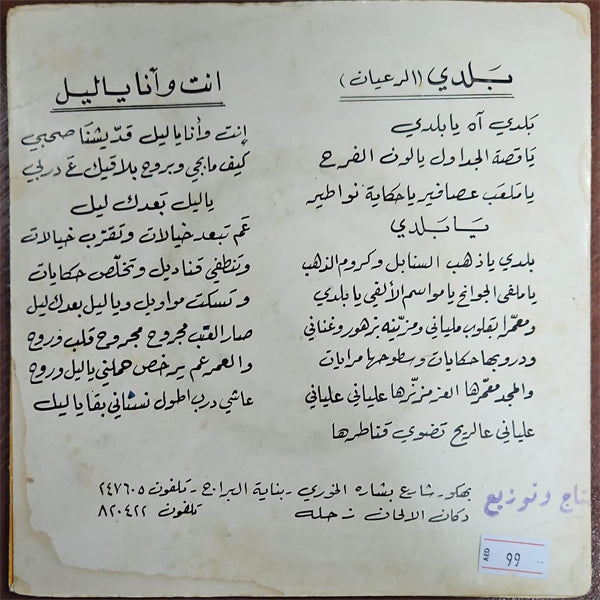 بَلدي (الرعيان)
بَلدي آه يا بلدي
يا قصة الجداول يا لون الفرح
يا ملعب عصافير يا حكاية نواطير
يَا بَلدي
بلدي يا ذهب السنابل وكروم الذهب
يا ملفى الجوانح يا مواسم الألفي يا بلدي
ومعمّرا بقلوب ملياني ومزيّنه بزهور وغناني
ودروبها حكايات وسطوحها مرايات
والمجد معمّرها العز مزنّرها علياني علياني
علياني عالريح تضوي قناطرها
انت وأنا يا ليل
إنت وأنا يا ليل قدّيشنا صحبي
كيف ما بجي وبروح بلاقيك عَ دربي
يا ليل بَعدك ليل
عَم تبعد خيالات وتقرّب خيالات
وتنطفي قناديل وتخلّص حكايات
وتسكت مواويل ويا ليل بعدك ليل
صار القلب مجروح مجروح قلب وروح
والعمر عم يرخص هملني يا ليل وروح
عاشي درب اطول نستناني بقا يا ليل
نتاج وتوزيع
بهكو - شارع بشاره الخوري - بناية البراج - تلفون ٢٤٧٦٠٥
دكان الالحان زحله تلفون ٨٢٠٤٢٢
AED
99